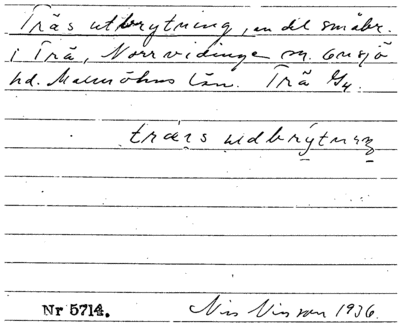 Trås utbrytning, en del småbr.
i Trå, Norrvidinge sn. Onsjö
hd. Malmöhus län. Trå 5/4.
trås udbrýtnıŋ
Nr 5714.
Nils Nilsson 1936.